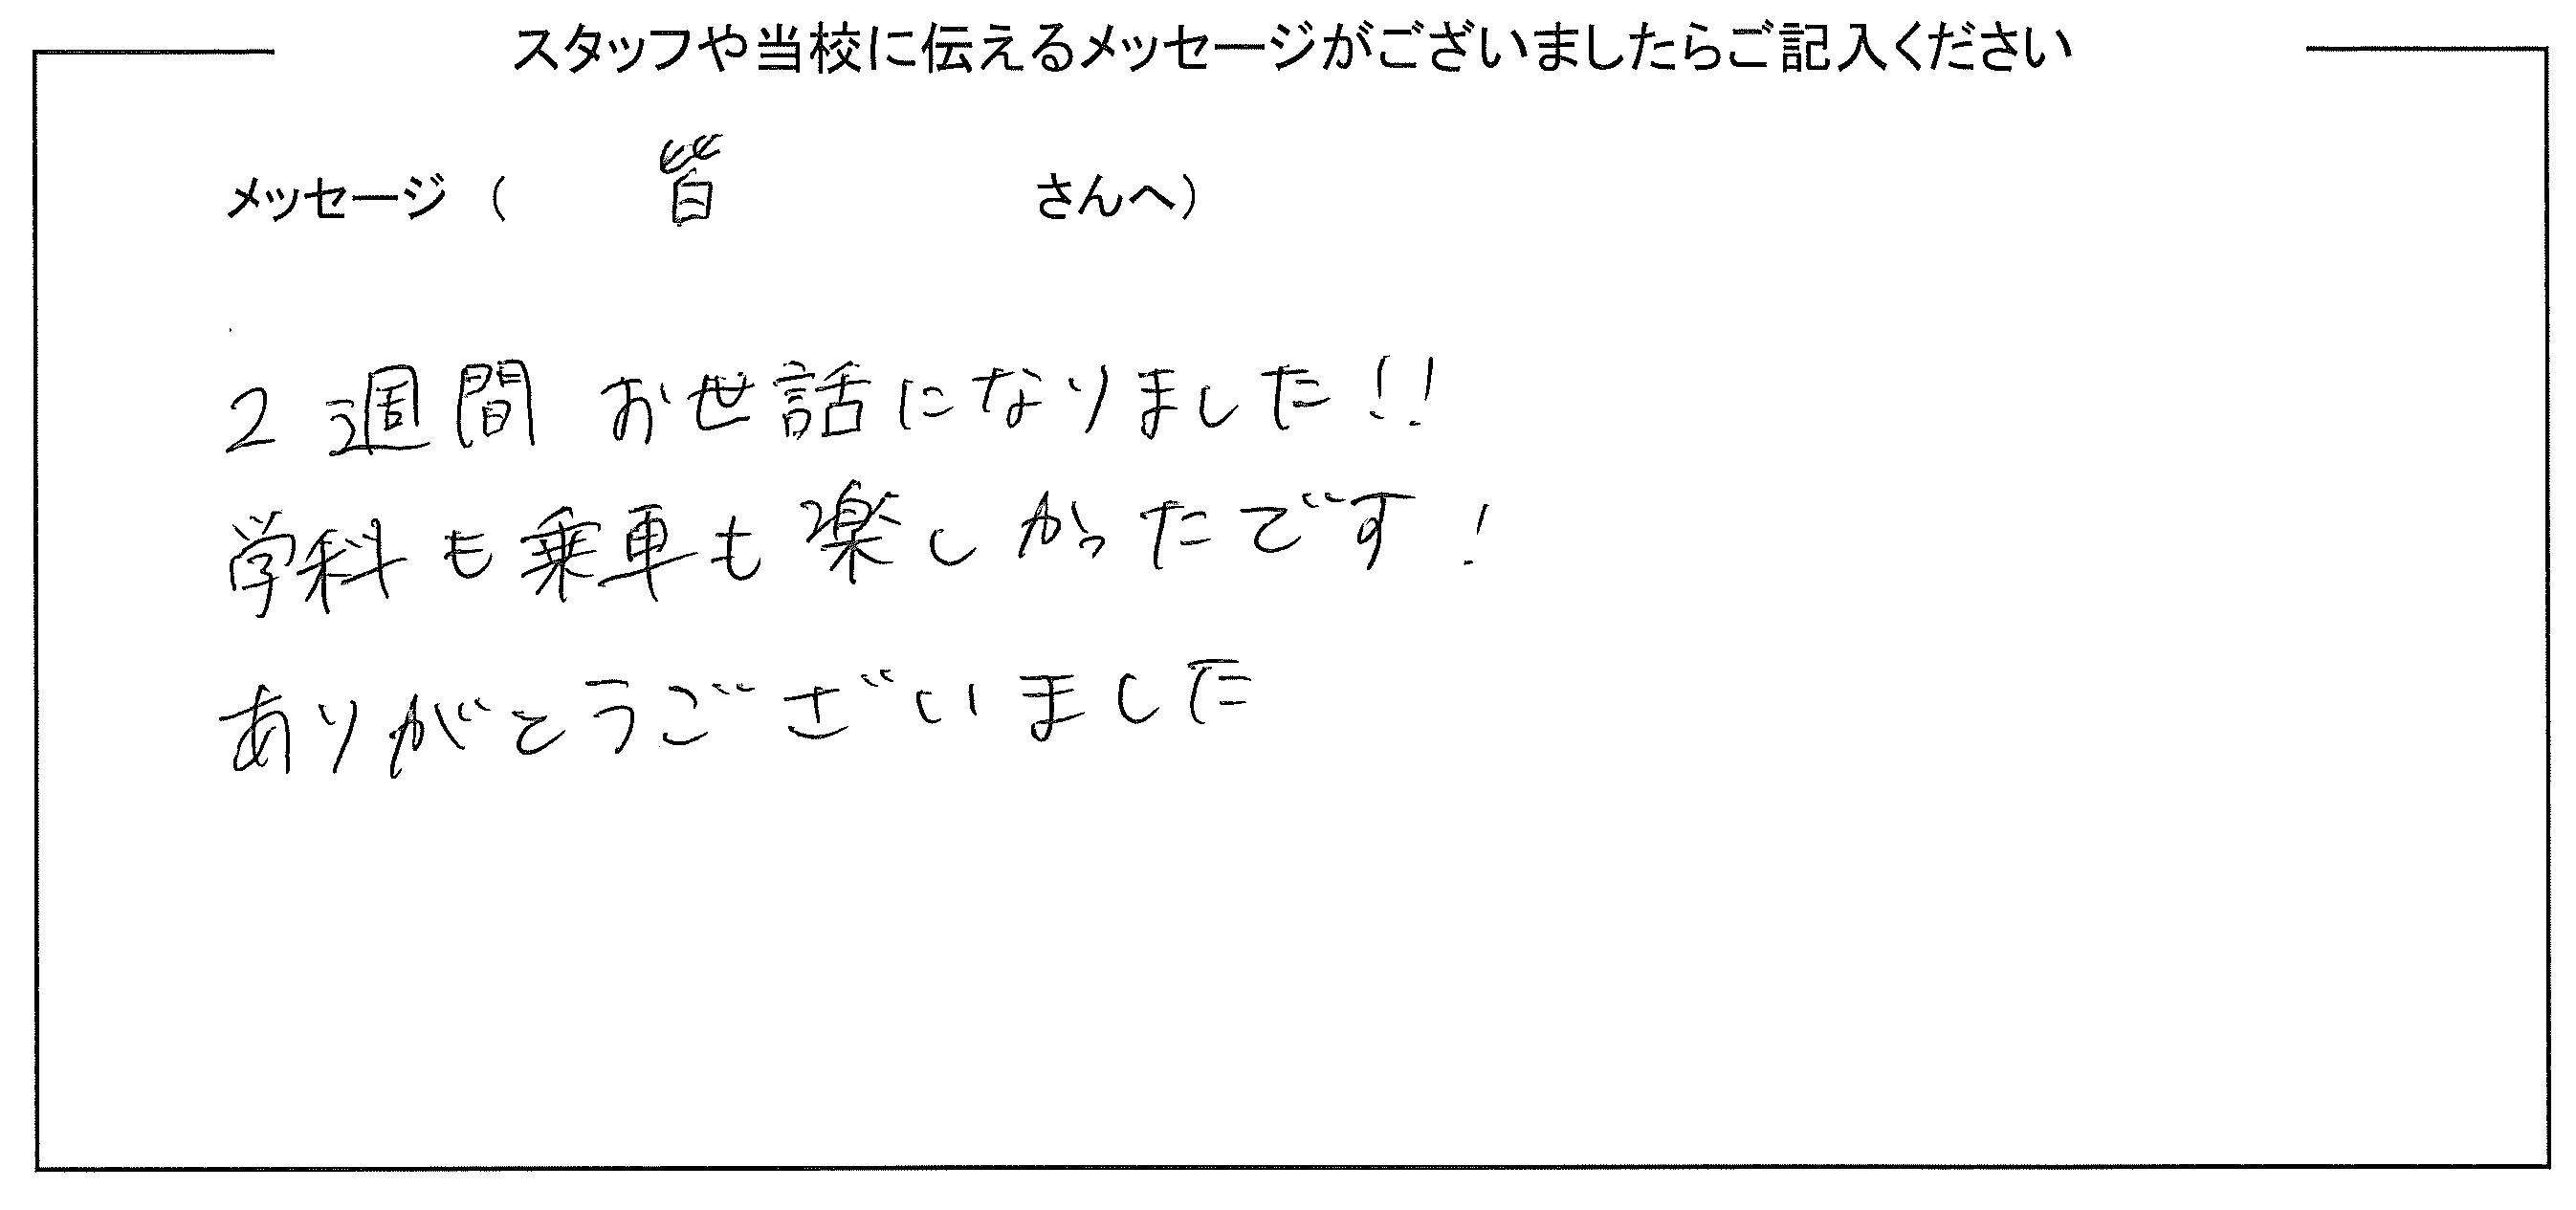 スタッフや当校に伝えるメッセージがございましたらご記入ください
メッセージ（ 皆 さんへ）
2週間 お世話になりました!!
学科も乗車も楽しかったです!
ありがとうございました